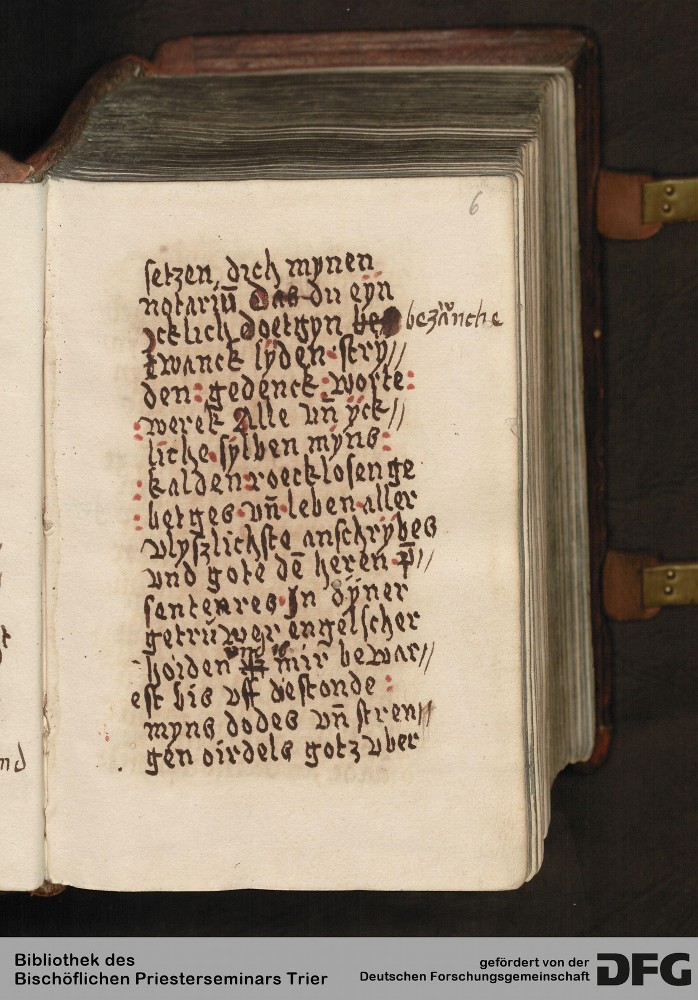 6
setzen dich mynen
notariū Das du eyn
ycklich doetgyn bezwänche
zwanck lyden stry//
den: gedenck: worte:
werck Alle uñ yck//
liche sylben myns:
kalden roecklosen ge
betges vñ leben aller
vlyszlichste anschrybes
vnd gote dē heren p̄//
senteares In dyner
getruwer engelscher
hoiden mir bewar//
est bis vff die stonde:
myns dodes vñ stren//
gen oirdels gotz vber
nd
Bibliothek des
Bischöflichen Priesterseminars Trier
gefördert von der
Deutschen Forschungsgemeinschaft
DFG